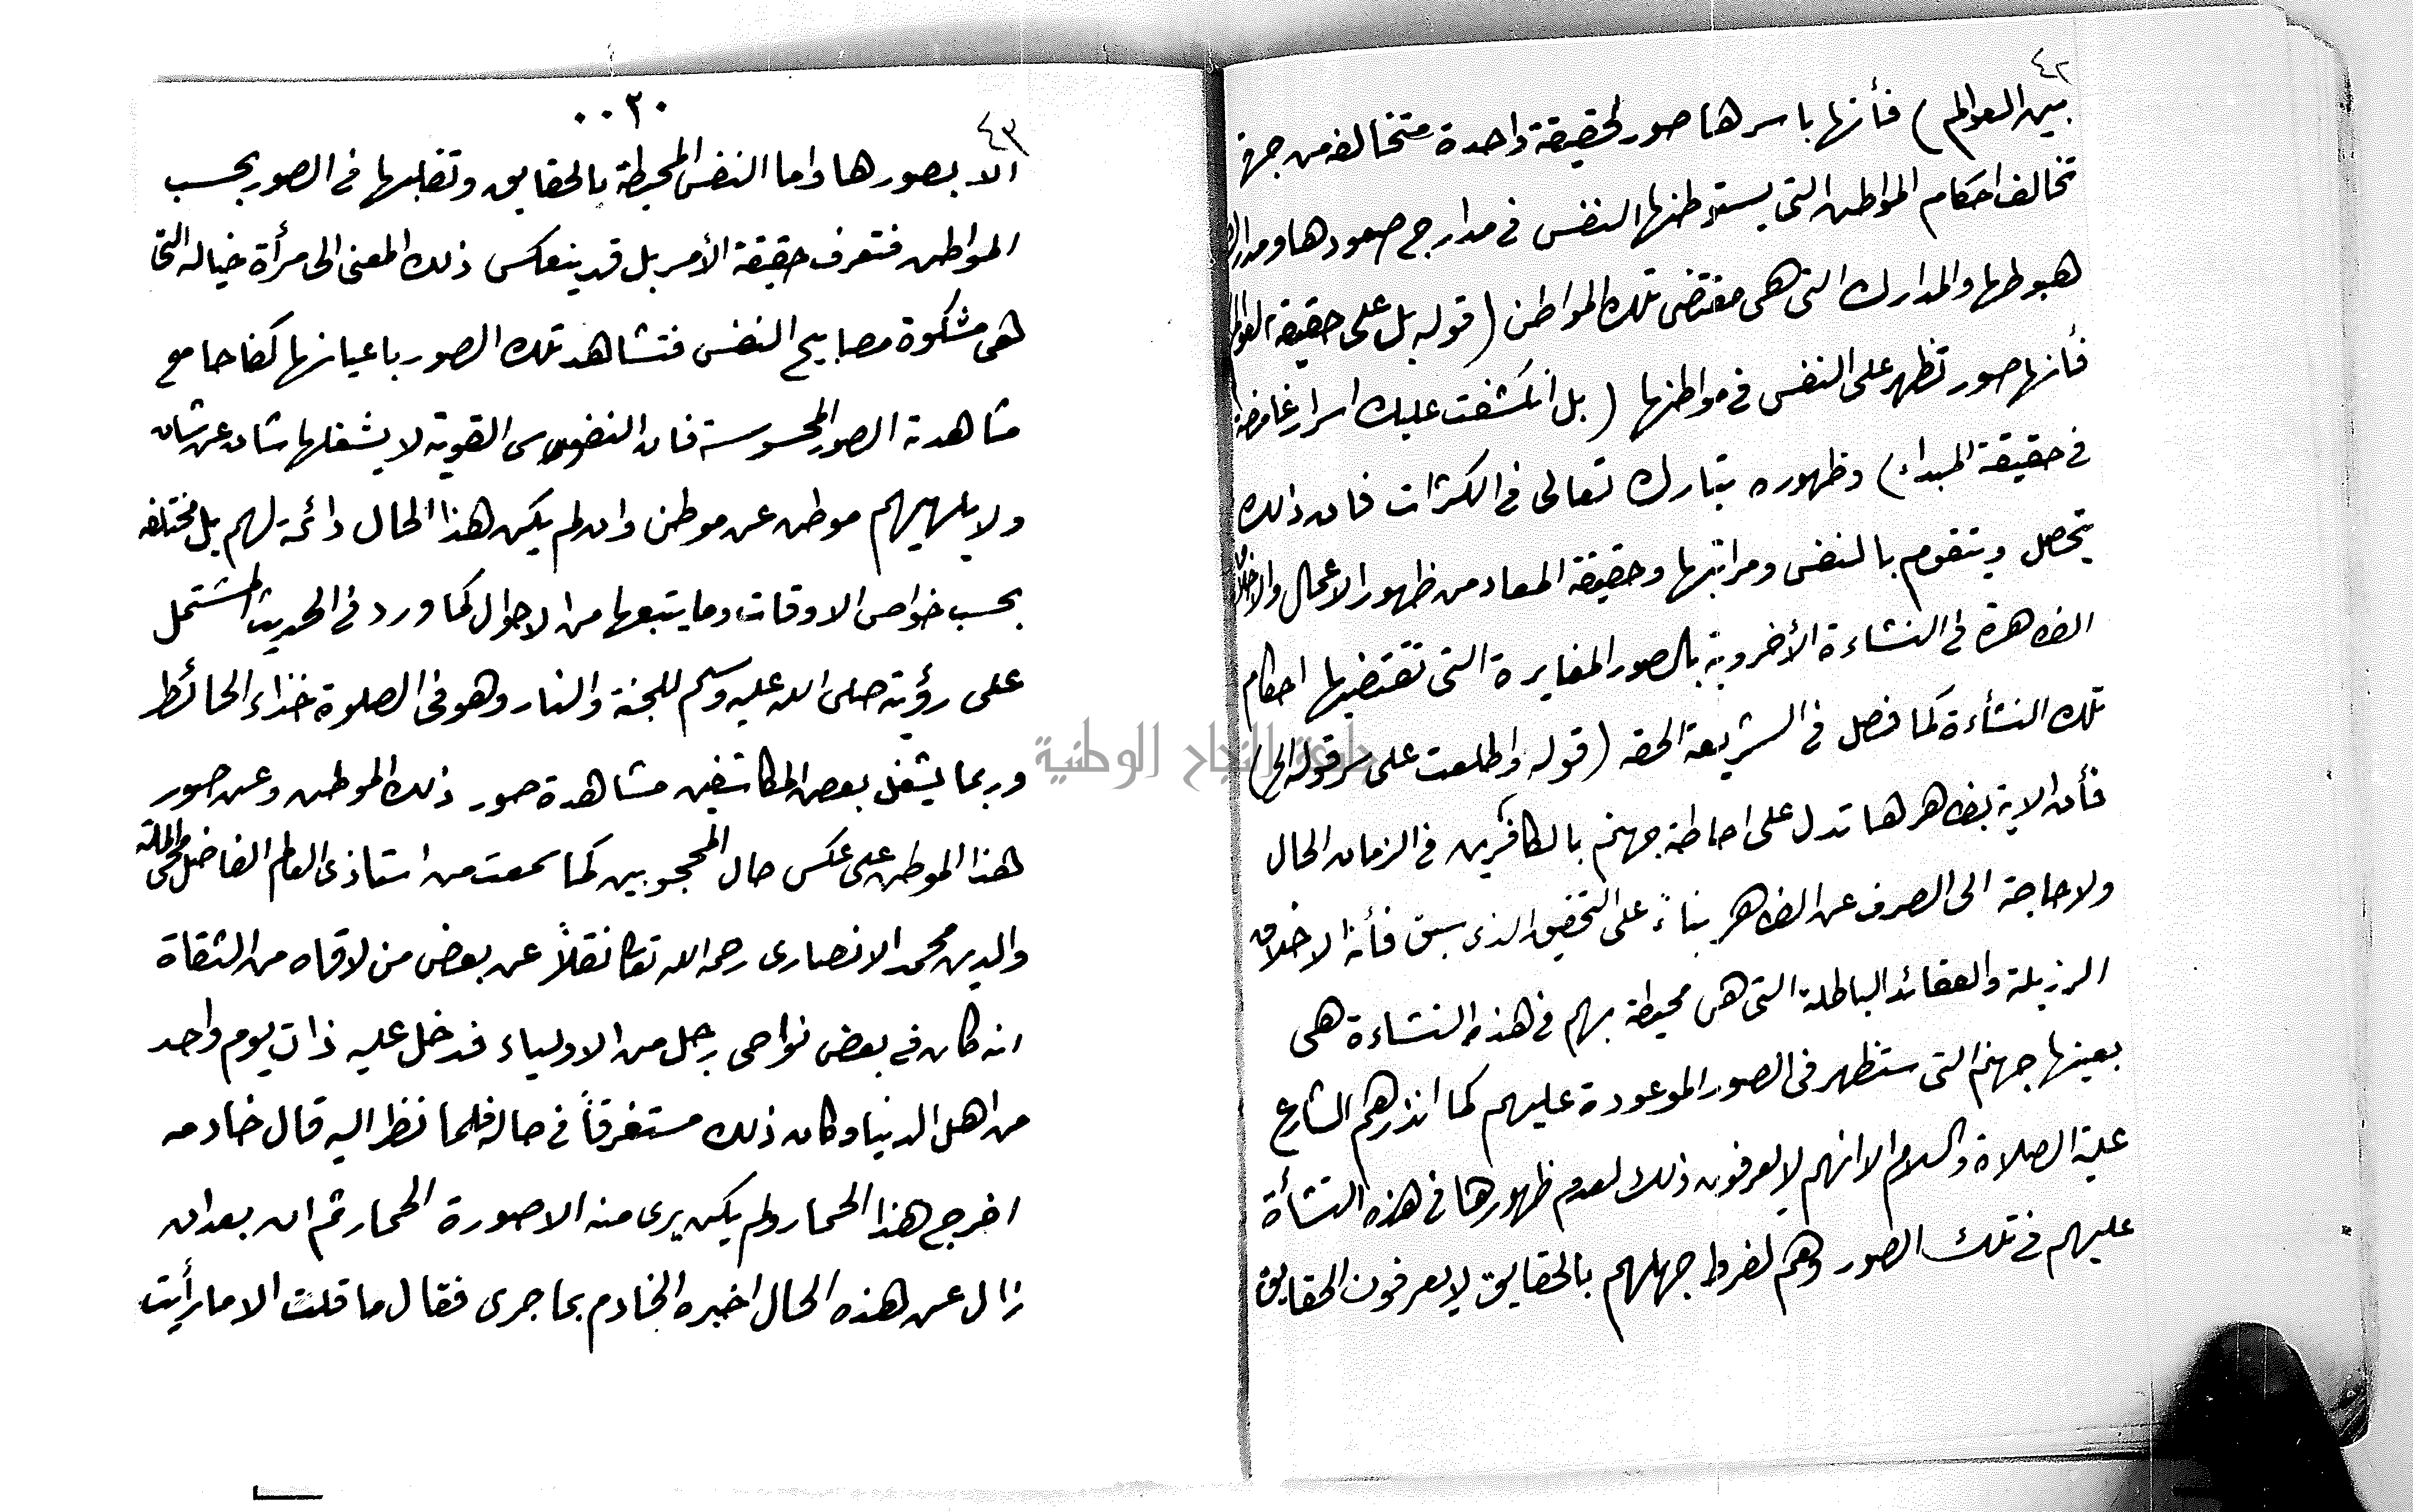 ٤٢
بين العوالم) فأنها باسرها صور لحقيقة واحدة متخالفه من جهة
تخالف احكام المواطن التى يستوطنها النفس فى مدارج صعودها و
هبوطها والمدارك التى هى مقتضى تلك المواطن (قوله بل على حقيقة العوالم
فأنها صور تظهر على النفس فى مواطنها (بل انكشفت عليك اسرار غامضة
فى حقيقة المبداء) وظهوره تبارك تعالى فى الكثرات فان ذلك
يتحصل ويتقوم بالنفس ومراتبها وحقيقة المعاد من ظهور الاعمال والاخلاق
الظاهرة فى النشاءة الأخروية بالصور المغايرة التى تقتضيها احكام
تلك النشأءة كما فصل فى الشريعة الحقه (قوله واطلعت على سر قوله الخ)
فأن الاية بظاهرها تدل على احاطة جهنم بالكافرين فى الزمان الحال
ولا حاجة الى الصرف عن الظاهر بناءً على التحقيق الذى سبق فأن الاخلاق
الرزيلة والعقائد الباطلة التى هى محيطة بهم فى هذه النشاءة هى
بعينها جهنم التى ستظهر فى الصور الموعودة عليهم كما انذرهم الشارع
عليه الصلاة والسلام الا انهم لا يعرفون ذلك لعدم ظهورها فى هذه النشأة
عليهم فى تلك الصور وهم لفرط جهلهم بالحقايق لا يعرفون الحقايق
٠٠٢٠
٤٣
الا بصورها واما النفس المحيطة بالحقايق وتقلبها فى الصور بحسب
المواطن فتعرف حقيقة الأمر بل قد ينعكس ذلك المعنى الى مرأة خياله التى
هى مشكوة مصابيح النفس فتشاهد تلك الصور باعيانها كفاحا مع
مشاهدة الصور المحسوسة فان النفوس القوية لا يشغلها شان عن شان
ولا يلهيهم موطن عن موطن وان لم يكن هذا الحال دائمة لهم بل مختلفه
بحسب خواص الاوقات وما يتبعها من الاحوال كما ورد فى الحديث المشتمل
على رؤية صلى الله عليه وسلم للجنة والنار وهو فى الصلوة خذاء الحائط
وربما يشغل بعض المكاشفين مشاهدة صور ذلك الموطن وعن صور
هذا الموطن على عكس حال المحجوبين كما سمعت من استاذى العالم الفاضل محى الملة
والدين محمد الانصارى رحمه الله تعا نقلاً عن بعض من لاقاه من الثقاة
انه كان فى بعض نواحى رجل من الاولياء فدخل عليه ذات يوم واحد
من اهل الدنيا وكان ذلك مستغرقاً فى حاله فلما نظر اليه قال خادمه
اخرج هذا الحمار ولم يكن يرى منه الا صورة الحمار ثم ان بعد ان
زال عن هذه الحال اخبره الخادم بما جرى فقال ما قلت الا ما رأيت
جامعة النجاح الوطنية